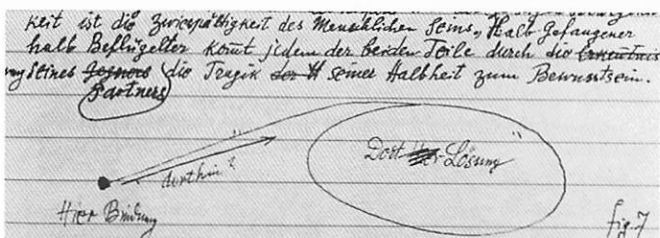 keit ist die Zwiespältigkeit des Menschlichen Seins, Halb Gefangener
halb Beflügelter kommt jedem der beiden Teile durch die Erkentnis
seines Gegners die Tragik der H seiner Halbheit zum Bewusstsein.
Partners
Dort Er-Lösung"
" dorthin?
Hier Bindung
fig. 7